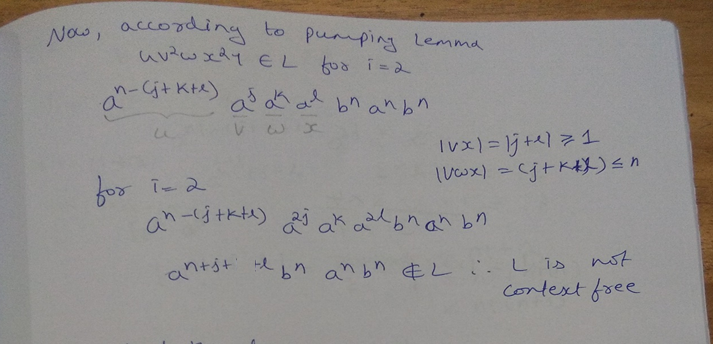 Now, according to pumping Lemma
uv²wx²y ∈ L for i=2
a^{n-(j+k+l)} a^j a^k a^l b^n a^n b^n
u v w x
|vx| = |j+l| ≥ 1
|vwx| = (j+k+l) ≤ n
for i=2
a^{n-(j+k+l)} a^{2j} a^k a^{2l} b^n a^n b^n
a^{n+j+l} b^n a^n b^n ∉ L ∴ L is not
context free